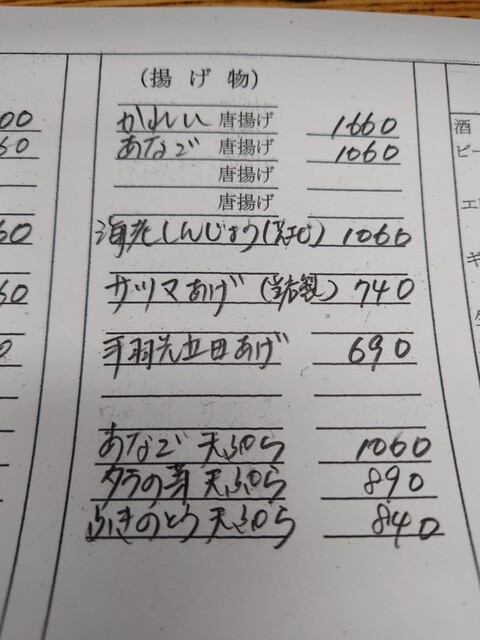 (揚げ物)
かれい 唐揚げ 1660
あなご 唐揚げ 1060
唐揚げ
唐揚げ
海老しんじょう 1060
サツマあげ 740
手羽先立田あげ 690
あなご 天ぷら 1060
タラの芽 天ぷら 890
ふきのとう 天ぷら 840
00
60
60
60
0
酒
ビー
エ
ギ